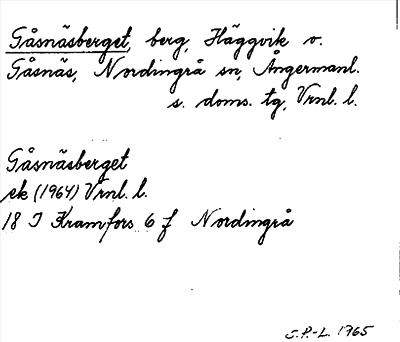 Gåsnäsberget, berg, Häggvik v.
Gåsnäs, Nordingrå sn, Ångermanl.
s. doms. tg, Vrnl. l.
Gåsnäsberget
ek (1964) Vrnl. l.
18 I Kramfors 6 f Nordingrå
S.P.-L. 1965